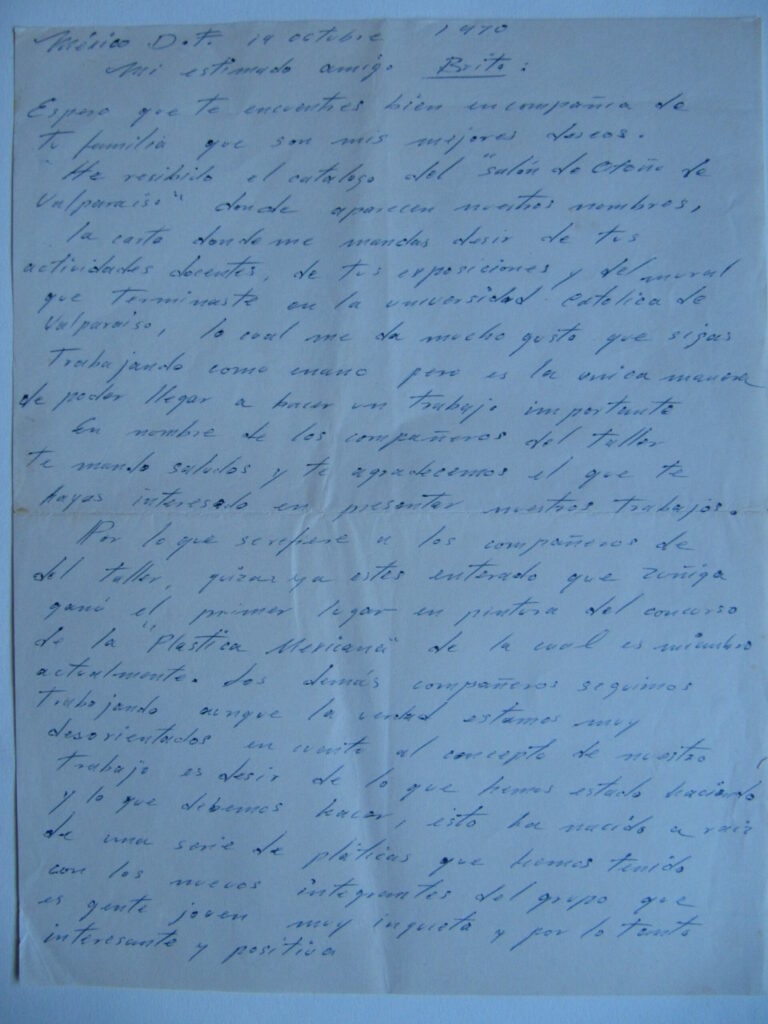 México D.F. 19 octubre 1970
Mi estimado amigo Brito:
Espero que te encuentres bien en compañia de
tu familia que son mis mejores deseos.
"He resibido el catalogo del "Salón de Otoño de
Valparaiso" donde aparecen nuestros nombres,
la carta donde me mandas desir de tus
actividades docentes, de tus exposiciones y del mural
que terminaste en la universidad Catolica de
Valparaiso, lo cual me da mucho gusto que sigas
trabajando como enano pero es la unica manera
de poder llegar a hacer un trabajo importante
En nombre de los compañeros del taller
te mando saludos y te agradecemos el que te
hayas interesado en presentar nuestros trabajos.
Por lo que serefiere a los compañeros de
del taller, quizas ya estes enterado que Zuñiga
ganó el primer lugar en pintura del concurso
de la "Plastica Mexicana" de la cual es miembro
actualmente. Los demás compañeros seguimos
trabajando aunque la verdad estamos muy
desorientados en cuanto al concepto de nuestro
trabajo es desir de lo que hemos estado haciendo
y lo que debemos hacer, esto ha nacido a raiz
de una serie de pláticas que hemos tenido
con los nuevos integrantes del grupo que
es gente joven muy inquieta y por lo tanto
interesante y positiva